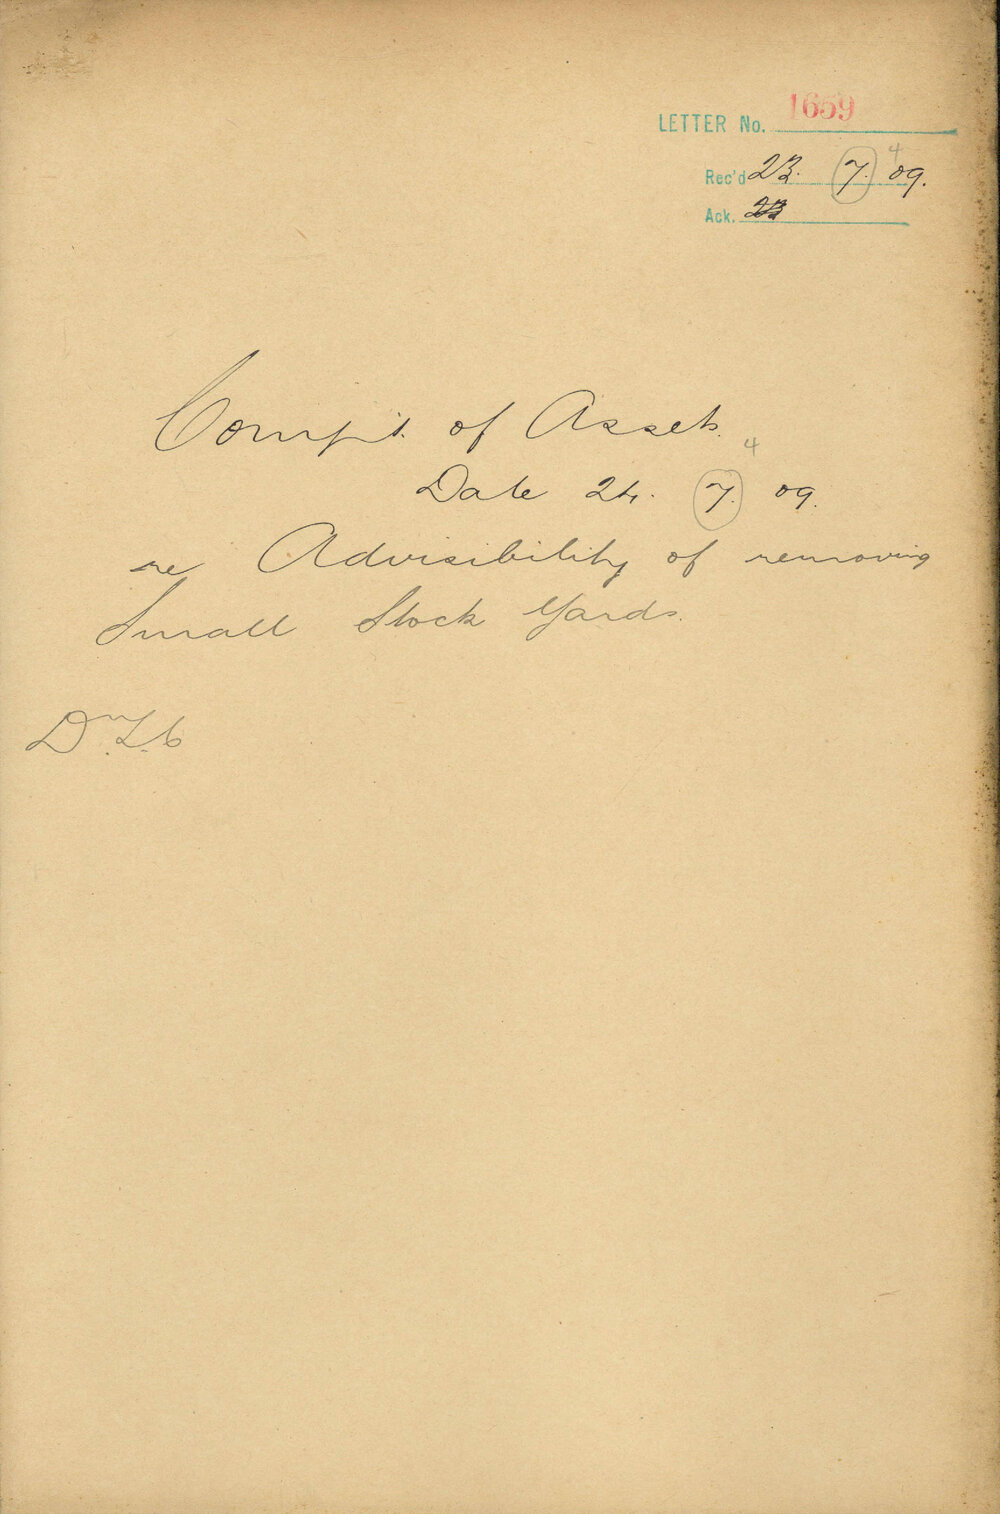 LETTER No. 1659
Rec'd 23. 7. 4 09.
Ack. 23
Compt. of Assets. 4
Date 24. 7. 09.
re Advisibility of removing
Small Stock Yards.